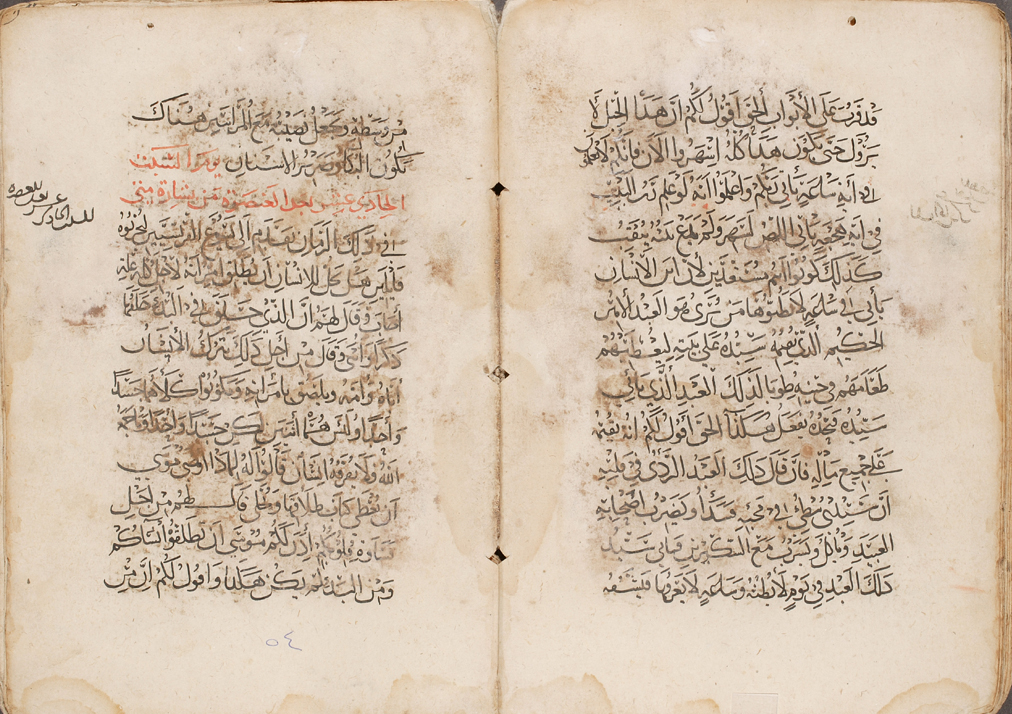 قد قرب على الأبواب الحق اقول لكم ان هذا الجيل لا
يزول حتى يكون هذا كله انتهروا الآن فانكم لا تعلمون
اي اية ساعة ياتي ربكم واعلموا انه لو علم رب البيت
في اية هجعة ياتي اللص لسهر ولم يدع بيته ينقب
كذلك كونوا انتم مستعدين لان ابن الانسان
ياتي في ساعة لا تظنوها من ترى هو العبد الأمين
الحكيم الذي يقيمه سيده على بيته ليعطيهم
طعامهم في حينه طوبا لذلك العبد الذي ياتي
سيده فيجده يفعل هكذا الحق اقول لكم انه يقيمه
على جميع ماله فان قال ذلك العبد الردي في قلبه
ان سيدي مبطي في مجيه فيبدأ ويضرب اصحابه
العبيد وياكل ويشرب مع السكيرين فياتي سيد
ذلك العبد في يوم لا يظنه وساعة لا يعرفها فيشقه
من وسطه ويجعل نصيبه مع المرائيين هناك
يكون البكا وصرير الاسنان يوم السبت
الحادي عشر بعد العنصرة من بشارة متى
في ذلك الزمان تقدم الى يسوع الفريسيين ليجربوه
قايلين هل يحل للانسان ان يطلق امراته لاجل كل علة
اجاب وقال لهم ان الذي خلق في البدء خلقهما
ذكرا وانثى وقال من اجل ذلك يترك الانسان
اباه وامه ويلصق بامراته ويكونوا كلاهما جسدا
واحدا وليس هما اثنين لكن جسدا واحدا وما جمعه
الله فلا يفرقه انسان قالوا له لماذا اوصى موسى
ان تعطى كتاب طلاقها وتخلى قال لهم من اجل
قساوة قلوبكم اذن لكم موسى ان تطلقوا نساكم
ومن البدء لم يكن هكذا واقول لكم ان من
٥٤